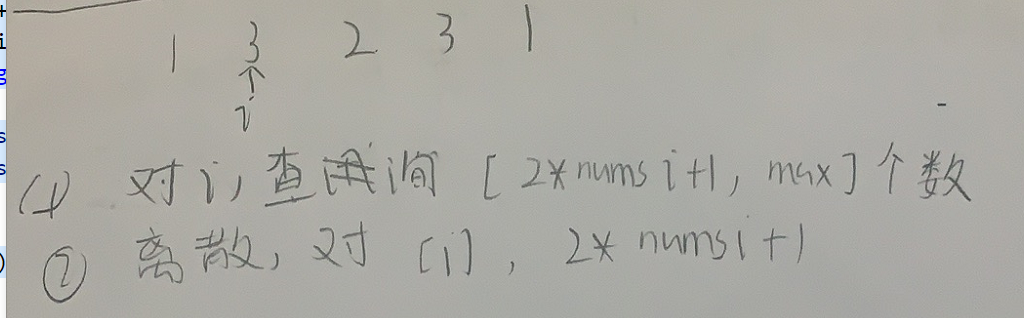 1 3 2 3 1
↑
i
(1) 对i, 查询 [2*nums i+1, max] 个数
② 离散, 对 [i], 2* nums i+1